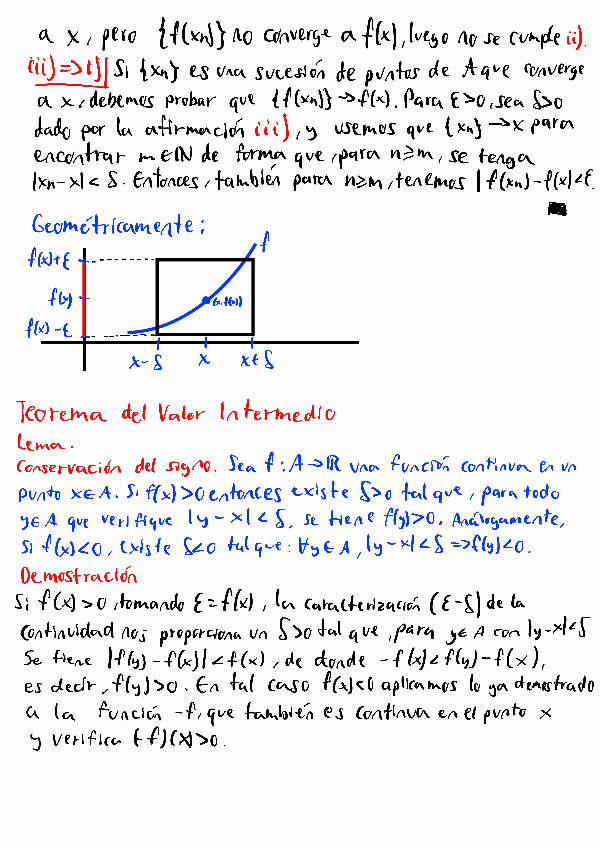 a x, pero {f(xn)} no converge a f(x), luego no se cumple ii).
iii) => i) Si {xn} es una sucesión de puntos de A que converge
a x, debemos probar que {f(xn)} → f(x). Para ε>0, sea δ>0
dado por la afirmación iii), y usemos que {xn} → x para
encontrar m∈ℕ de forma que, para n≥m, se tenga
|xn-x| < δ. Entonces, también para n≥m, tenemos |f(xn)-f(x)|<ε.
Geométricamente:
f
f(x)+ε
f(x)
(x,f(x))
f(x)-ε
x-δ x x+δ
Teorema del Valor Intermedio
Lema.
Conservación del signo. Sea f: A→ℝ una función continua en un
punto x∈A. Si f(x)>0 entonces existe δ>0 tal que, para todo
y∈A que verifique |y-x|<δ, se tiene f(y)>0. Análogamente,
si f(x)<0, existe δ<0 tal que: ∀y∈A, |y-x|<δ =>f(y)<0.
Demostración
Si f(x)>0, tomando ε=f(x), la caracterización (ε-δ) de la
continuidad nos proporciona un δ>0 tal que, para y∈A con |y-x|<δ
Se tiene |f(y)-f(x)|<f(x), de donde -f(x)<f(y)-f(x),
es decir, f(y)>0. En tal caso f(x)<0 aplicamos lo ya demostrado
a la función -f, que también es continua en el punto x
y verifica (-f)(x)>0.